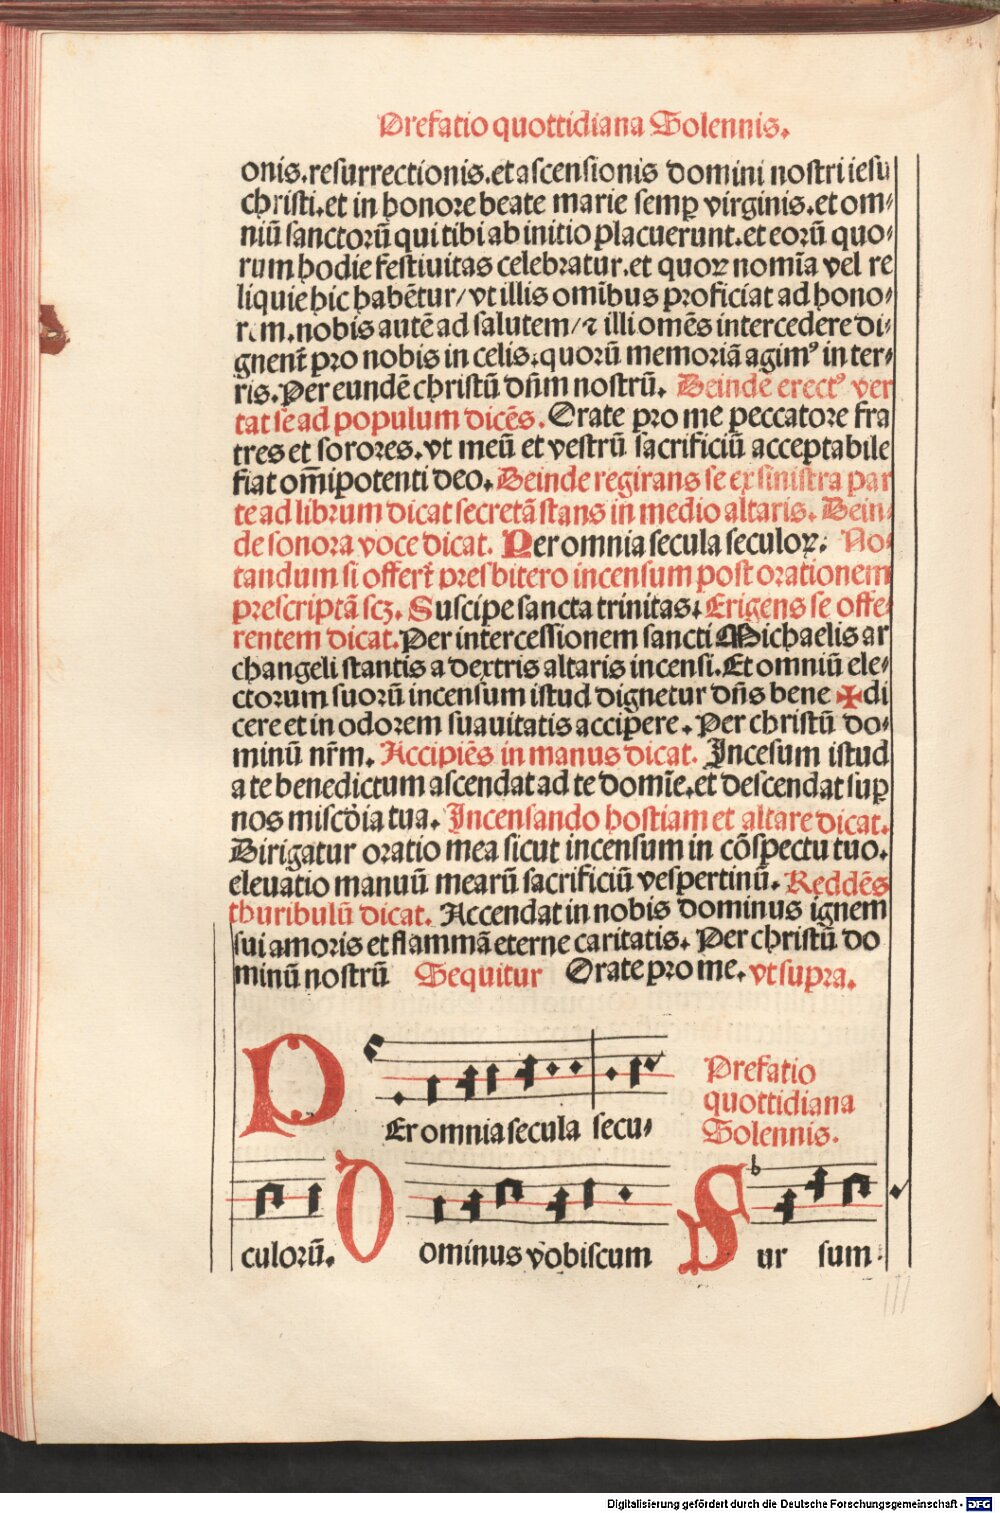 Prefatio quottidiana Solennis.
onis.resurrectionis.et ascensionis domini nostri iesu
christi.et in honore beate marie semꝑ virginis.et om⸗
niū sanctorū qui tibi ab initio placuerunt.et eorū quo⸗
rum hodie festivitas celebratur.et quoꝝ nomīa vel re
liquie hic habētur/vt illis omībus proficiat ad hono⸗
rem.nobis autē ad salutem/⁊ illi omēs intercedere di⸗
gnent̄ pro nobis in celis.quorū memoriā agimꝰ in ter⸗
ris.Per eundē christū dn̄m nostrū. Deinde erectꝰ ver
tat se ad populum dicēs. Orate pro me peccatore fra
tres et sorores.vt meū et vestrū sacrificiū acceptabile
fiat om̄ipotenti deo. Deinde regirans se ex sinistra par
te ad librum dicat secretā stans in medio altaris. Dein⸗
de sonora voce dicat. Per omnia secula seculoꝝ. No⸗
tandum si offert̄ presbitero incensum post orationem
prescriptā scꝫ. Suscipe sancta trinitas. Erigens se offe⸗
rentem dicat. Per intercessionem sancti Michaelis ar
changeli stantis a dextris altaris incensi.Et omniū ele⸗
ctorum suorū incensum istud dignetur dn̄s bene ✠ di
cere et in odorem suavitatis accipere. Per christū do⸗
minū nr̄m. Accipiēs in manus dicat. Incesum istud
a te benedictum ascendat ad te domīe.et descendat suꝑ
nos misc̄dia tua. Incensando hostiam et altare dicat.
Dirigatur oratio mea sicut incensum in cōspectu tuo.
elevatio manuū mearū sacrificiū vespertinū. Reddēs
thuribulū dicat. Accendat in nobis dominus ignem
sui amoris et flammā eterne caritatis. Per christū do
minū nostrū Sequitur Orate pro me. vt supra.
Prefatio
quottidiana
Solennis.
PEr omnia secula secu⸗
culorū. Dominus vobiscum Sursum
Digitalisierung gefördert durch die Deutsche Forschungsgemeinschaft - DFG